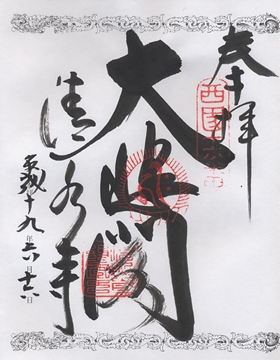 奉拝
西国十六番
大悲閣
清水寺
平成十九年六月 日